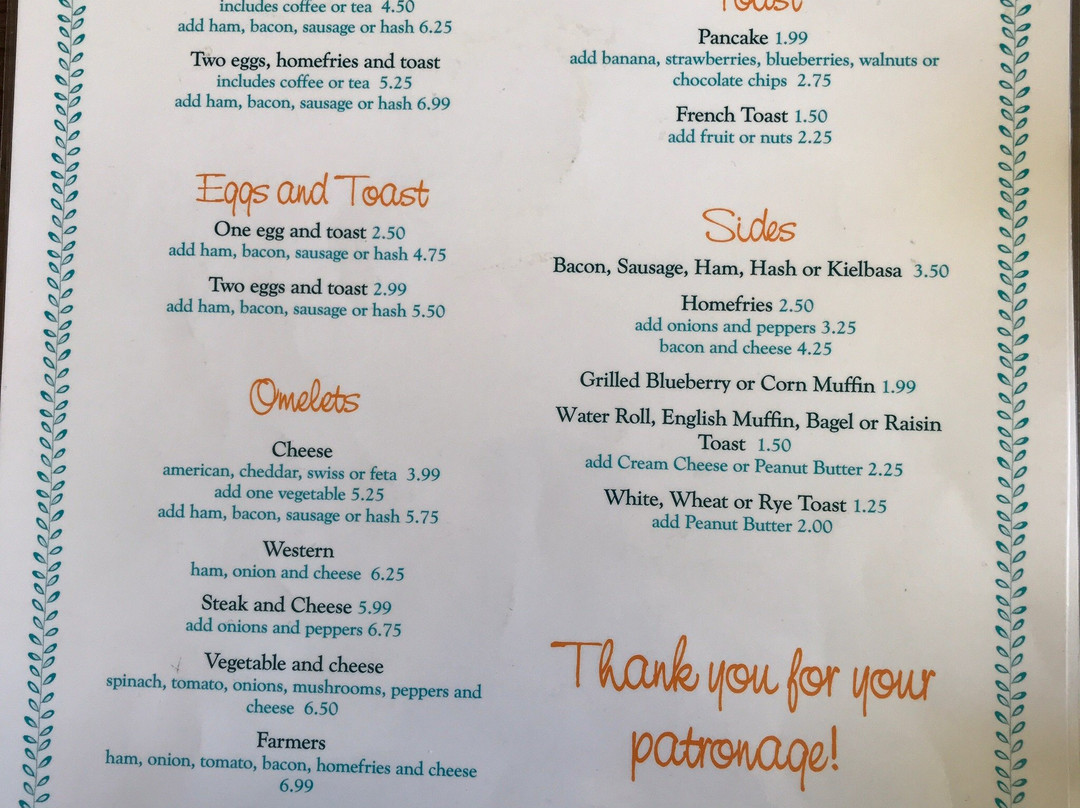 includes coffee or tea 4.50
add ham, bacon, sausage or hash 6.25
Two eggs, homefries and toast
includes coffee or tea 5.25
add ham, bacon, sausage or hash 6.99
Eggs and Toast
One egg and toast 2.50
add ham, bacon, sausage or hash 4.75
Two eggs and toast 2.99
add ham, bacon, sausage or hash 5.50
Omelets
Cheese
american, cheddar, swiss or feta 3.99
add one vegetable 5.25
add ham, bacon, sausage or hash 5.75
Western
ham, onion and cheese 6.25
Steak and Cheese 5.99
add onions and peppers 6.75
Vegetable and cheese
spinach, tomato, onions, mushrooms, peppers and
cheese 6.50
Farmers
ham, onion, tomato, bacon, homefries and cheese
6.99
Toast
Pancake 1.99
add banana, strawberries, blueberries, walnuts or
chocolate chips 2.75
French Toast 1.50
add fruit or nuts 2.25
Sides
Bacon, Sausage, Ham, Hash or Kielbasa 3.50
Homefries 2.50
add onions and peppers 3.25
bacon and cheese 4.25
Grilled Blueberry or Corn Muffin 1.99
Water Roll, English Muffin, Bagel or Raisin
Toast 1.50
add Cream Cheese or Peanut Butter 2.25
White, Wheat or Rye Toast 1.25
add Peanut Butter 2.00
Thank you for your
patronage!